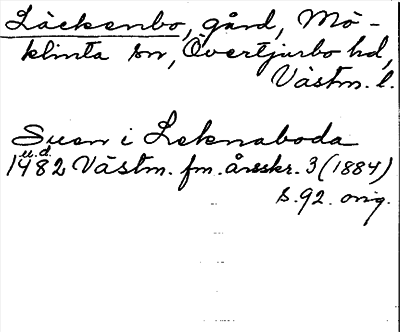 Läckenbo, gård, Mö-
klinta sn, Övertjurbo hd,
Västm. l.
Suen i Leknaboda
u.d.
1482 Västm. fm. årsskr. 3 (1884)
s. 92. orig.